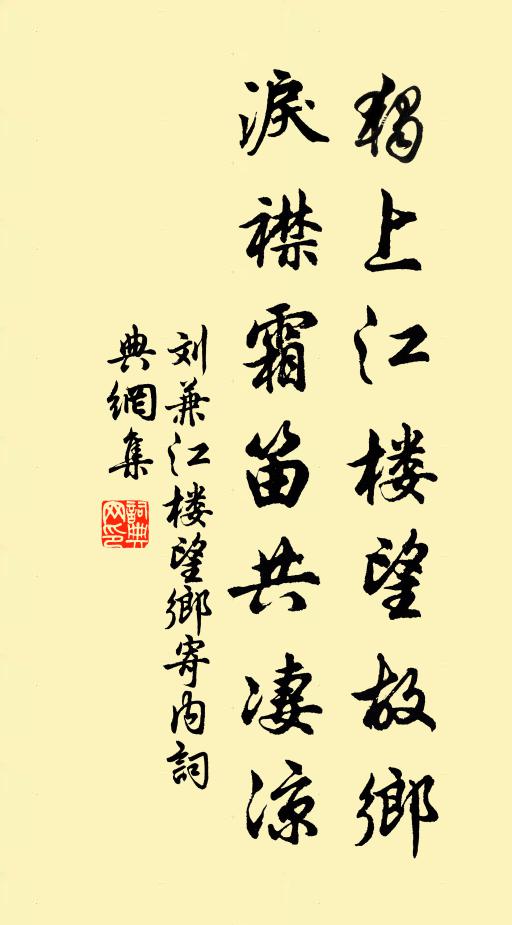 獨上江楼望故鄉
淚襟霜笛共凄涼
刘兼江楼望鄉寄内詞
典網集
詞典
网印